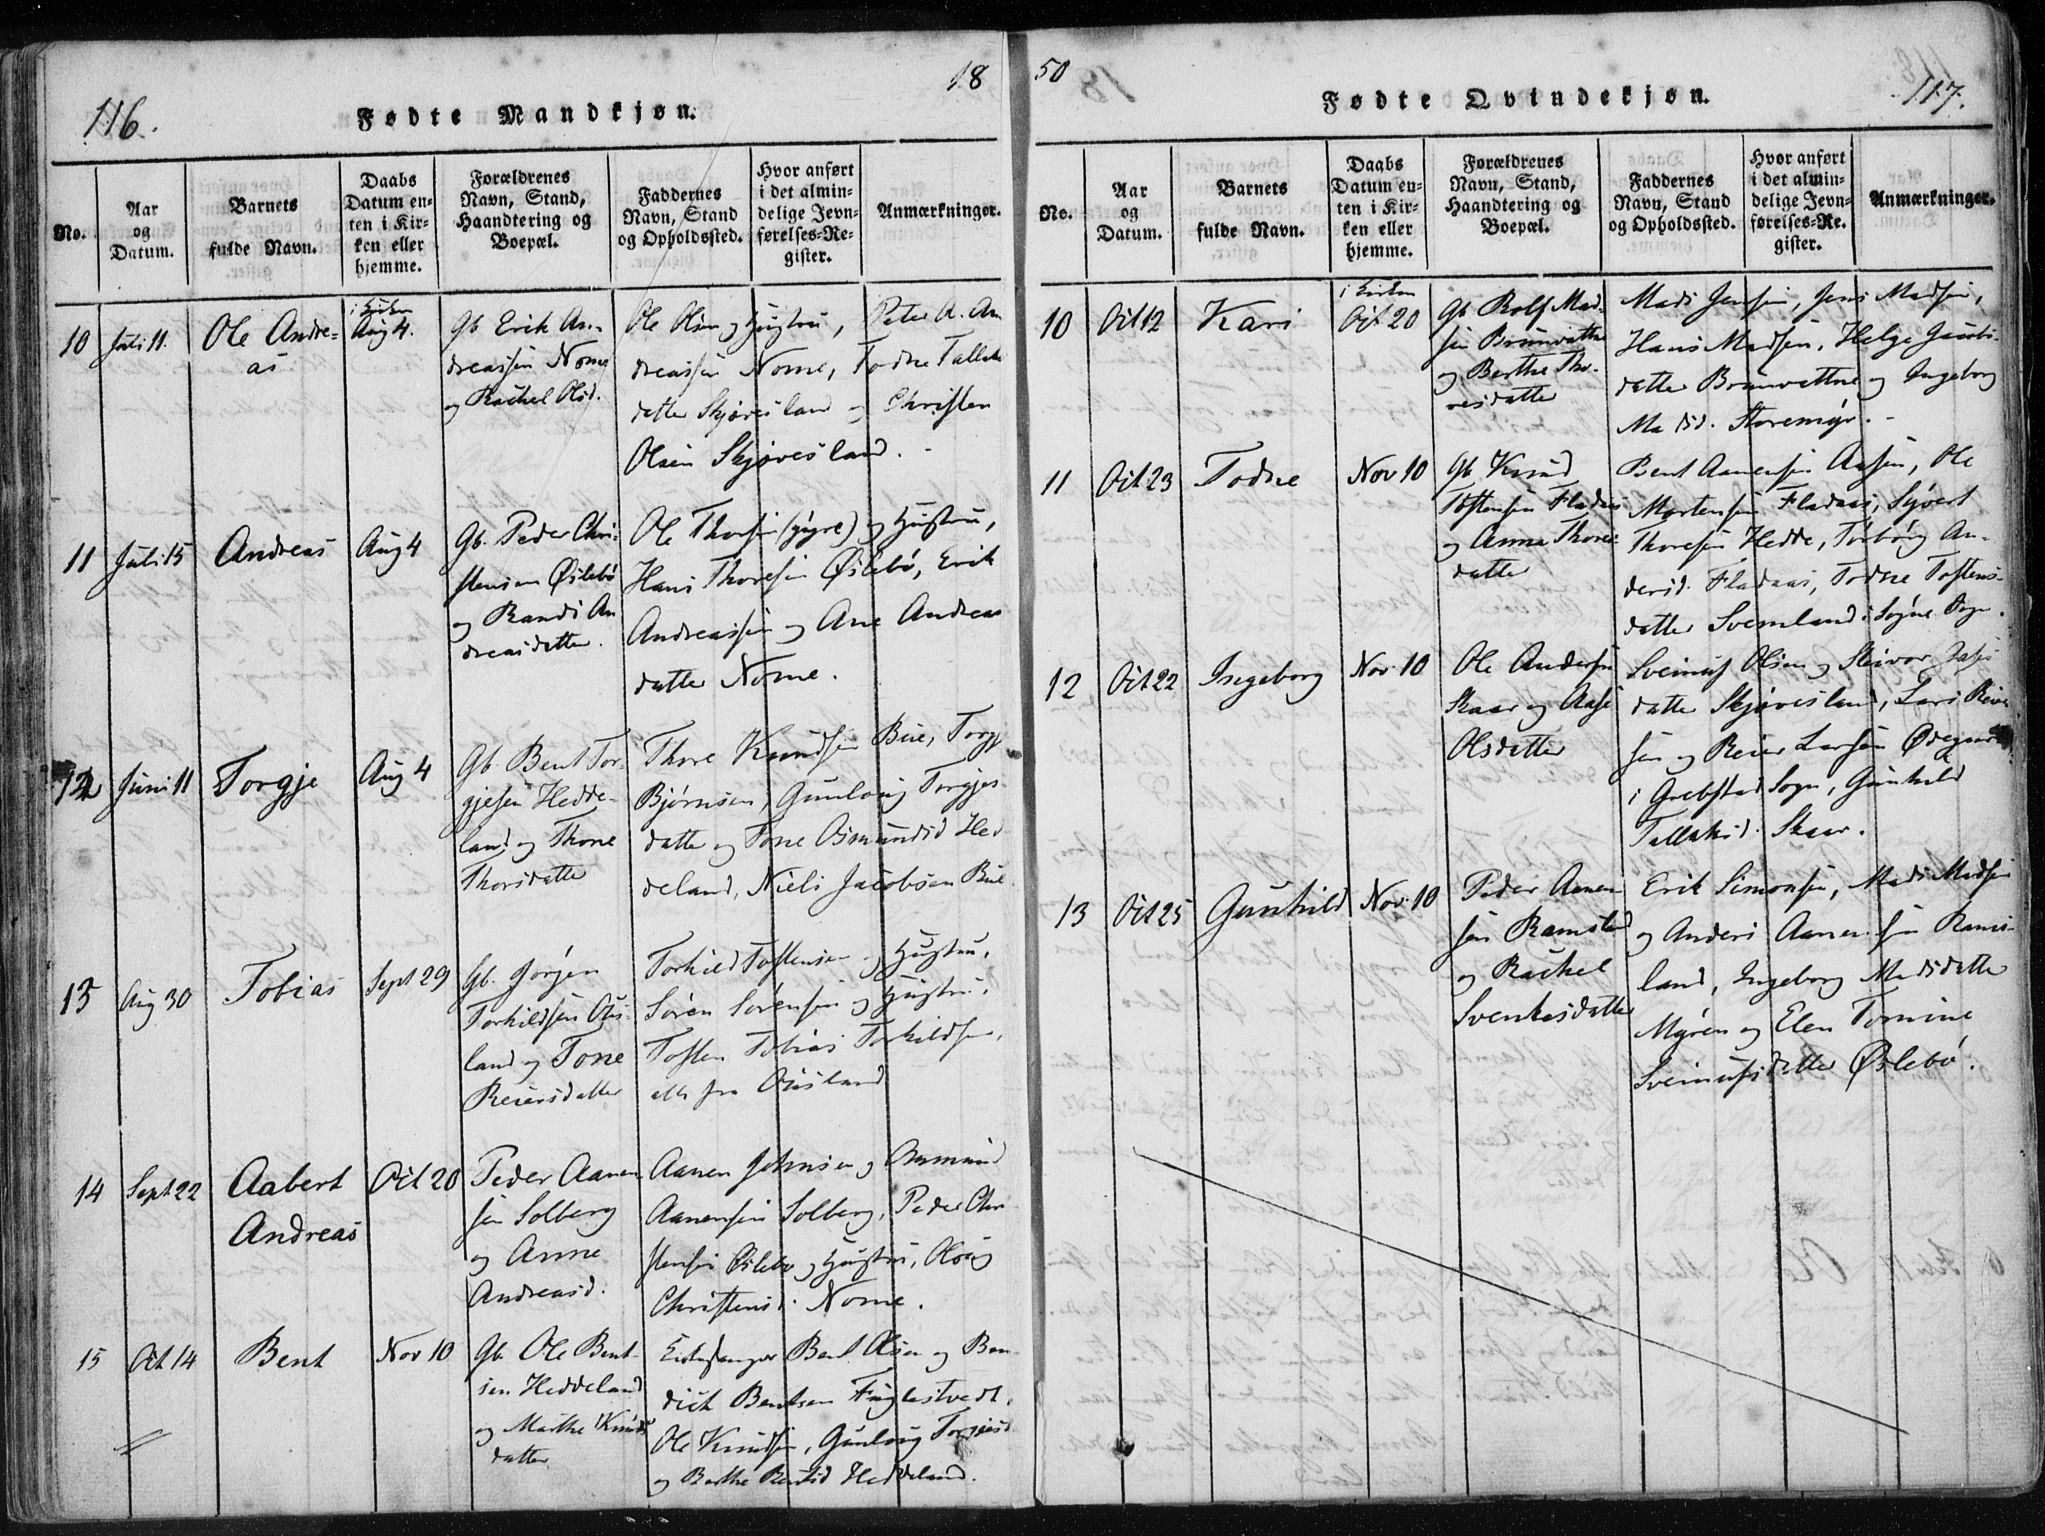 116.
18
Fødte Mandkjøn.
No.
Aar
og
Datum.
Barnets
fulde Navn.
Daabs
Datum en-
ten i Kir-
ken eller
hjemme.
Forældrenes
Navn, Stand,
Haandtering og
Boepæl.
Faddernes
Navn, Stand
og Opholdssted.
Hvor anført
i det almin-
delige Jevn-
førelses-Re-
gister.
Anmærkninger.
10
Juli 11.
Ole Andre-
as
i Kirken
Aug 4.
Gb. Erik An-
dreassen Nome
og Rachel Olsd.
Ole Olsen og Hustru, Peter A. An
dreassen Nome, Todne Tallak
datter Skjøvesland og Christen
Olsen Skjøvesland.
11
Juli 15
Andreas
Aug 4
Gb. Peder Chri-
stensen Øslebø
og Randi An
dreasdatter.
Ole Thorsen (gyve) og Hustru,
Hans Thoresen Øslebø, Erik
Andreassen og Ane Andreas
datter Nome.
12
Juni 11
Torgje
Aug 4
Gb. Bent Tor-
gjesen Hedde-
land og Thone
Thorsdatter
Thore Knudsen Bue, Torgje
Bjørnsen, Gunloug Torgjes-
datter og Tone Osmundsd Hed-
deland, Niels Jacobsen Bue
13
Aug 30
Tobias
Sept 29
Gb. Jørgen
Torkildsen Øus-
land og Tone
Reiersdatter
Torkild Tostensen og Hustru,
Søren Sørensen og Hustru,
Tosten Tobias Torkildsen,
alle fra Ousland
14
Sept 22
Aabert
Andreas
Oct 20
Peder Aanen
sen Solberg
og Anne
Andreasd.
Aanen Johnsen og Osmund
Aanensen Solberg, Peder Chri
stensen Øslebø og Hustru, Oloug
Christensd. Nome.
15
Oct 14
Bent
Nov 10
Gb. Ole Bent-
sen Heddeland
og Marthe Knuds
datter
Kirkesanger Bent Olsen og Ben
dict Bentsen Fuglestvedt,
Ole Knudsen, Gunloug Torgjesd
og Berthe Bentsd Heddeland.
50
117.
Fødte Qvindekjøn.
No.
Aar
og
Datum.
Barnets
fulde Navn.
Daabs
Datum en-
ten i Kir-
ken eller
hjemme.
Forældrenes
Navn, Stand,
Haandtering og
Boepæl.
Faddernes
Navn, Stand
og Opholdssted.
Hvor anført
i det almin-
delige Jevn-
førelses-Re-
gister.
Anmærkninger.
10
Oct 12
Kari
i Kirken
Oct 20
Gb Rolf Mad-
sen Brunvatne
og Berthe Tho-
resdatter
Mads Jensen, Jens Madsen,
Hans Madsen, Helge Jacobs-
datter Brunvattne og Ingeborg
Madsd. Storemyr.
11
Oct 23
Todne
Nov 10
Gb Knud
Tostensen Fladaas
og Anna Thores
datter
Bent Aanensen Aasen, Ole
Mortensen Fladaas, Syvert
Thoresen Hedde, Torborg An-
dersd. Fladaas, Todne Tostens-
datter Svemland i Søgne Sogn.
12
Oct 22
Ingeborg
Nov 10
Ole Andersen
Skaar og Aase
Olsdatter
Sveinus Olsen og Steivor
datter Skjøvesland, Lars Reier
sen og Reier Larsen Ødegaard
i Grebstad Sogn, Gunhild
Tallaksd. Skaar.
13
Oct 25
Gunhild
Nov. 10
Peder Aanen
sen Ramsland
og Rachel
Svenkesdatter
Erik Simonsen, Mads Madsen
og Anders Aanensen Rams-
land, Ingeborg Madsdatter
Myren og Elen Tomine
Sveinusdatter Øslebø.